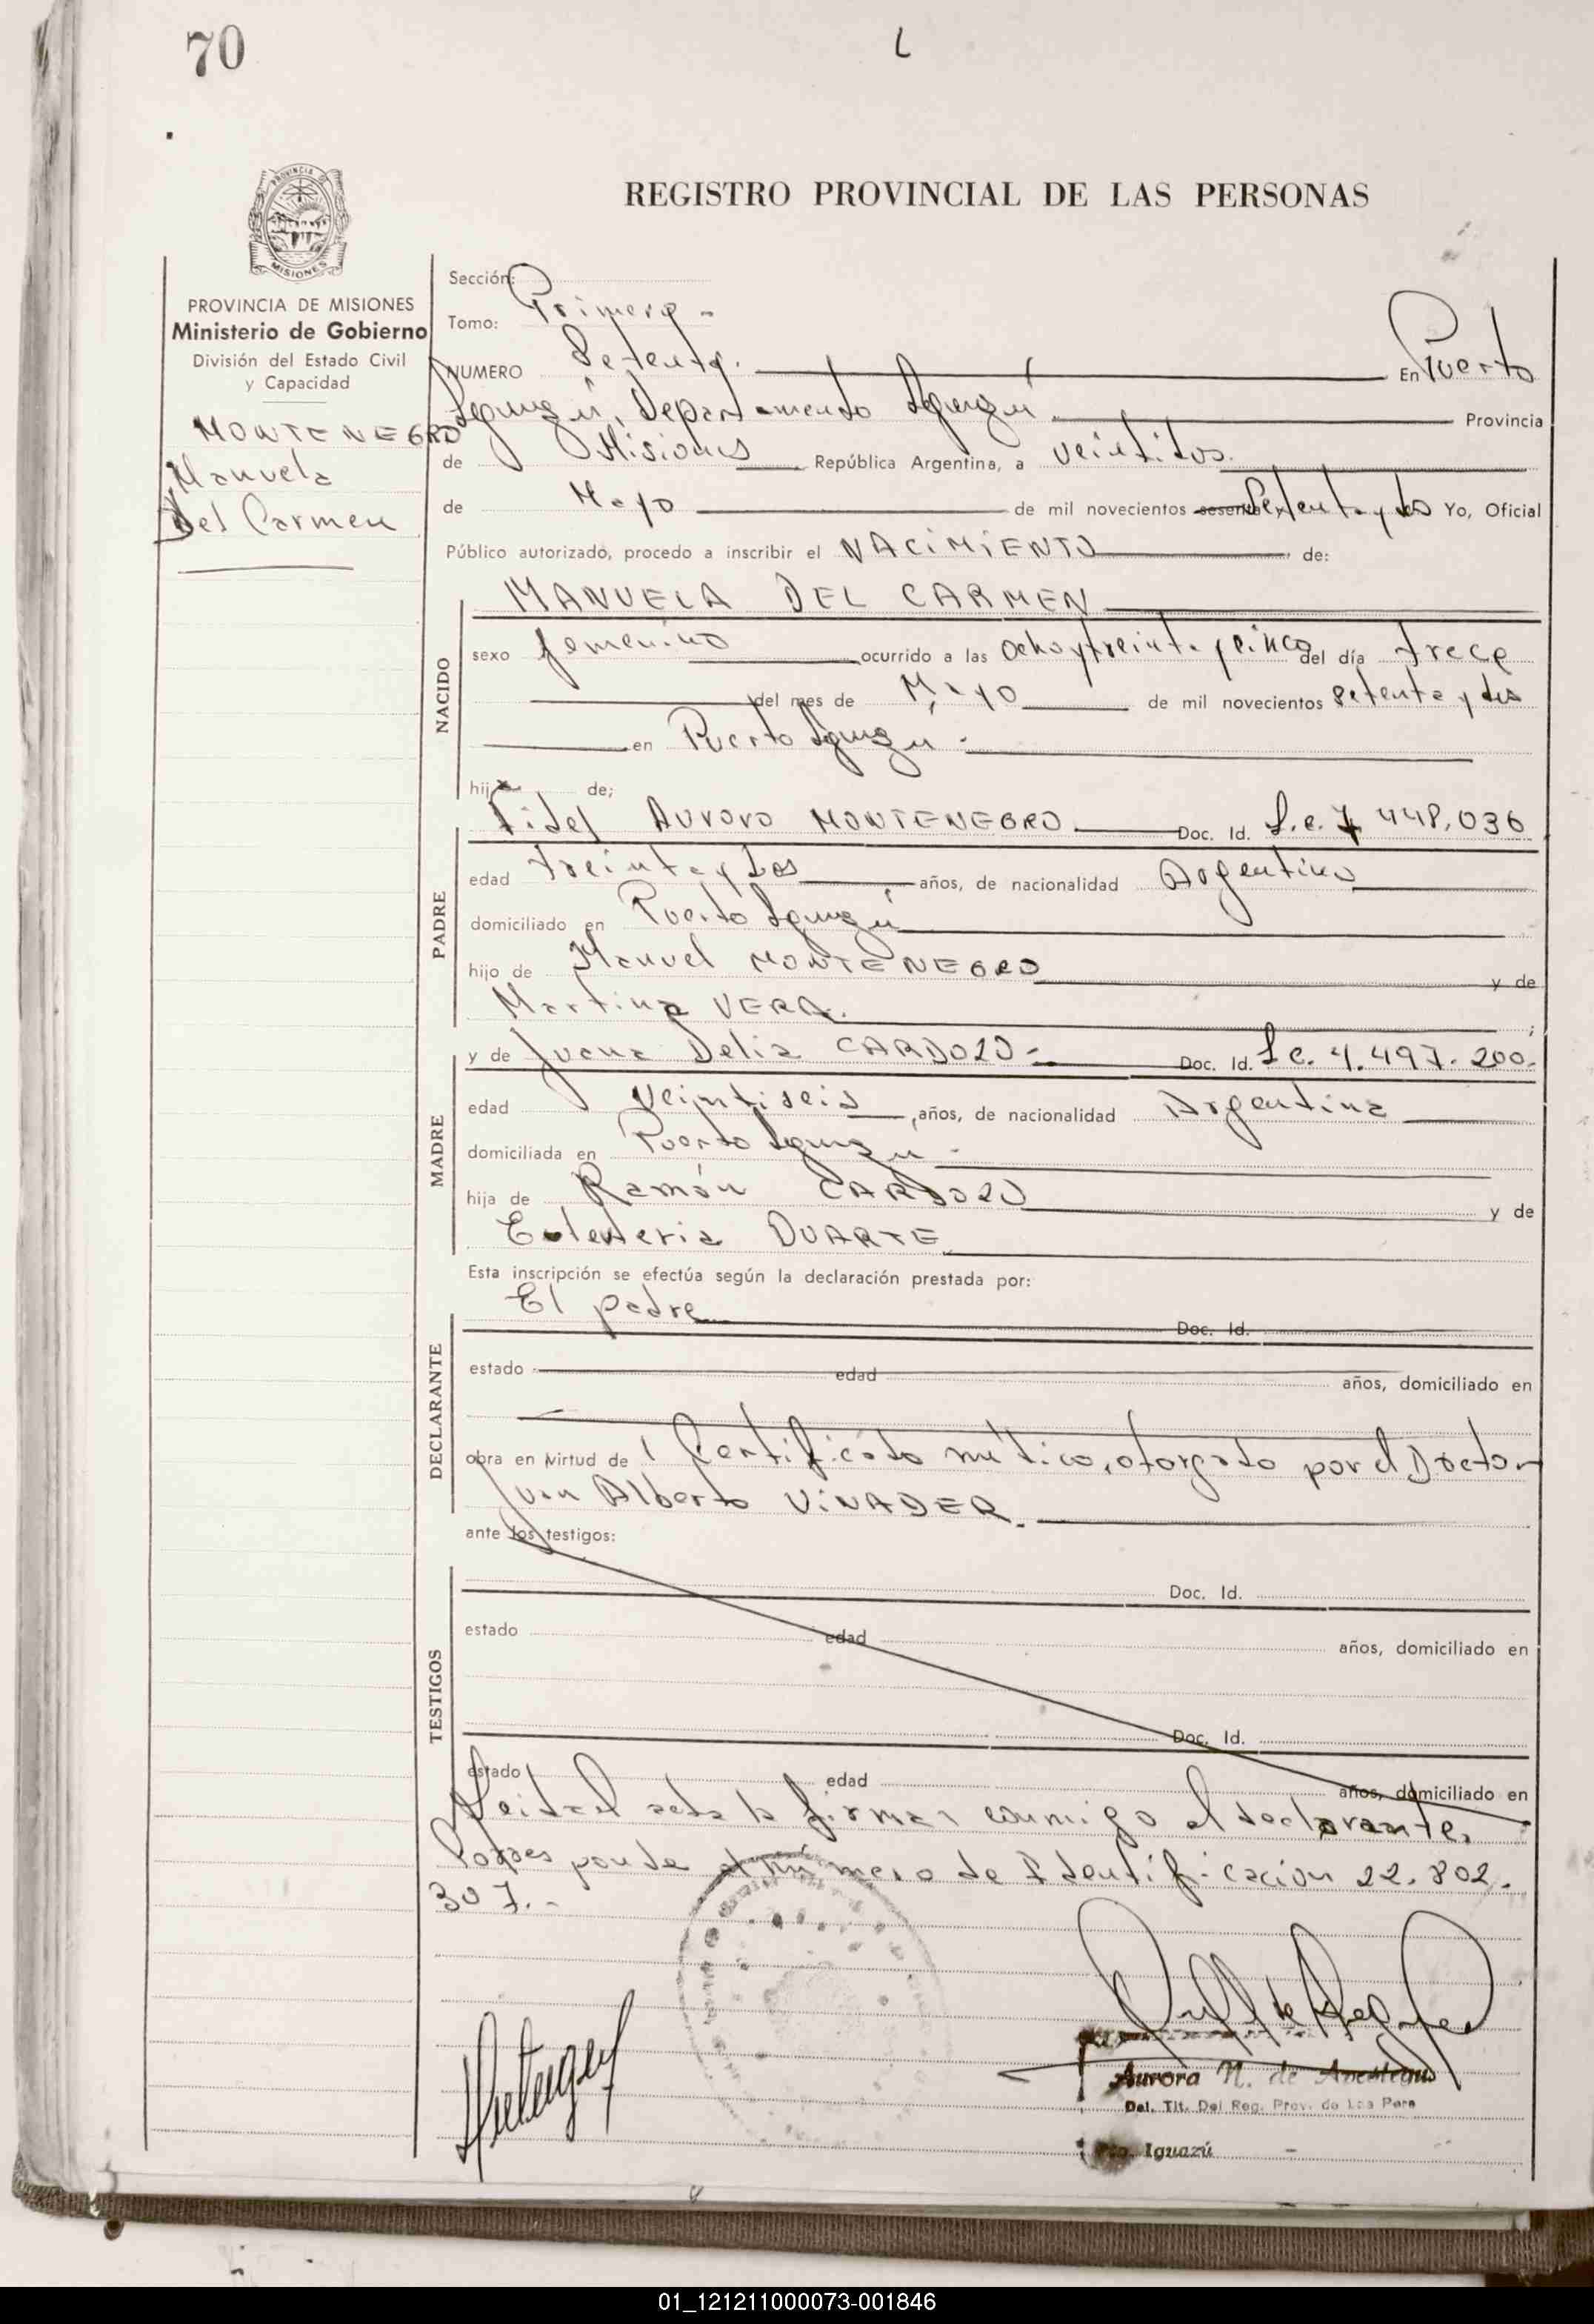 70
L
REGISTRO PROVINCIAL DE LAS PERSONAS
PROVINCIA DE MISIONES
MISIONES
PROVINCIA DE MISIONES
Ministerio de Gobierno
División del Estado Civil
y Capacidad
MONTENEGRO
Manuela
Del Carmen
Sección: Primera -
Tomo:
NUMERO Setenta. En Puerto
Iguazú, Departamento Iguazú Provincia
de Misiones República Argentina, a veintidos.
de Mayo de mil novecientos sesenta Setenta y dos Yo, Oficial
Público autorizado, procedo a inscribir el NACIMIENTO de:
NACIDO
MANUELA DEL CARMEN
sexo femenino ocurrido a las ocho y treinta y cinco del día trece
del mes de Mayo de mil novecientos setenta y dos
en Puerto Iguazú -
hija de;
PADRE
Fidel Auroro MONTENEGRO Doc. Id. L.e. 7 448.036
edad treinta y dos años, de nacionalidad Argentino
domiciliado en Puerto Iguazú
hijo de Manuel MONTENEGRO y de
Martina VERA. ;
MADRE
y de Juana Delia CARDOZO - Doc. Id. L c. 4.497.200.
edad veintiseis años, de nacionalidad Argentina
domiciliada en Puerto Iguazú -
hija de Ramón CARDOZO y de
DUARTE
Esta inscripción se efectúa según la declaración prestada por:
DECLARANTE
El padre Doc. Id.
estado edad años, domiciliado en
obra en virtud de 1 Certificado médico, otorgado por el Doctor
Juan Alberto VINADER.
ante los testigos:
TESTIGOS
Doc. Id.
estado edad años, domiciliado en
Doc. Id.
estado edad años, domiciliado en
Leida el acta la firman conmigo el declarante.
Corresponde el número de Identificación 22.802.
307.-
Aurora N. de
Del. Tit. Del Reg. Prov. de Las Pers
Pto. Iguazú
01_121211000073-001846